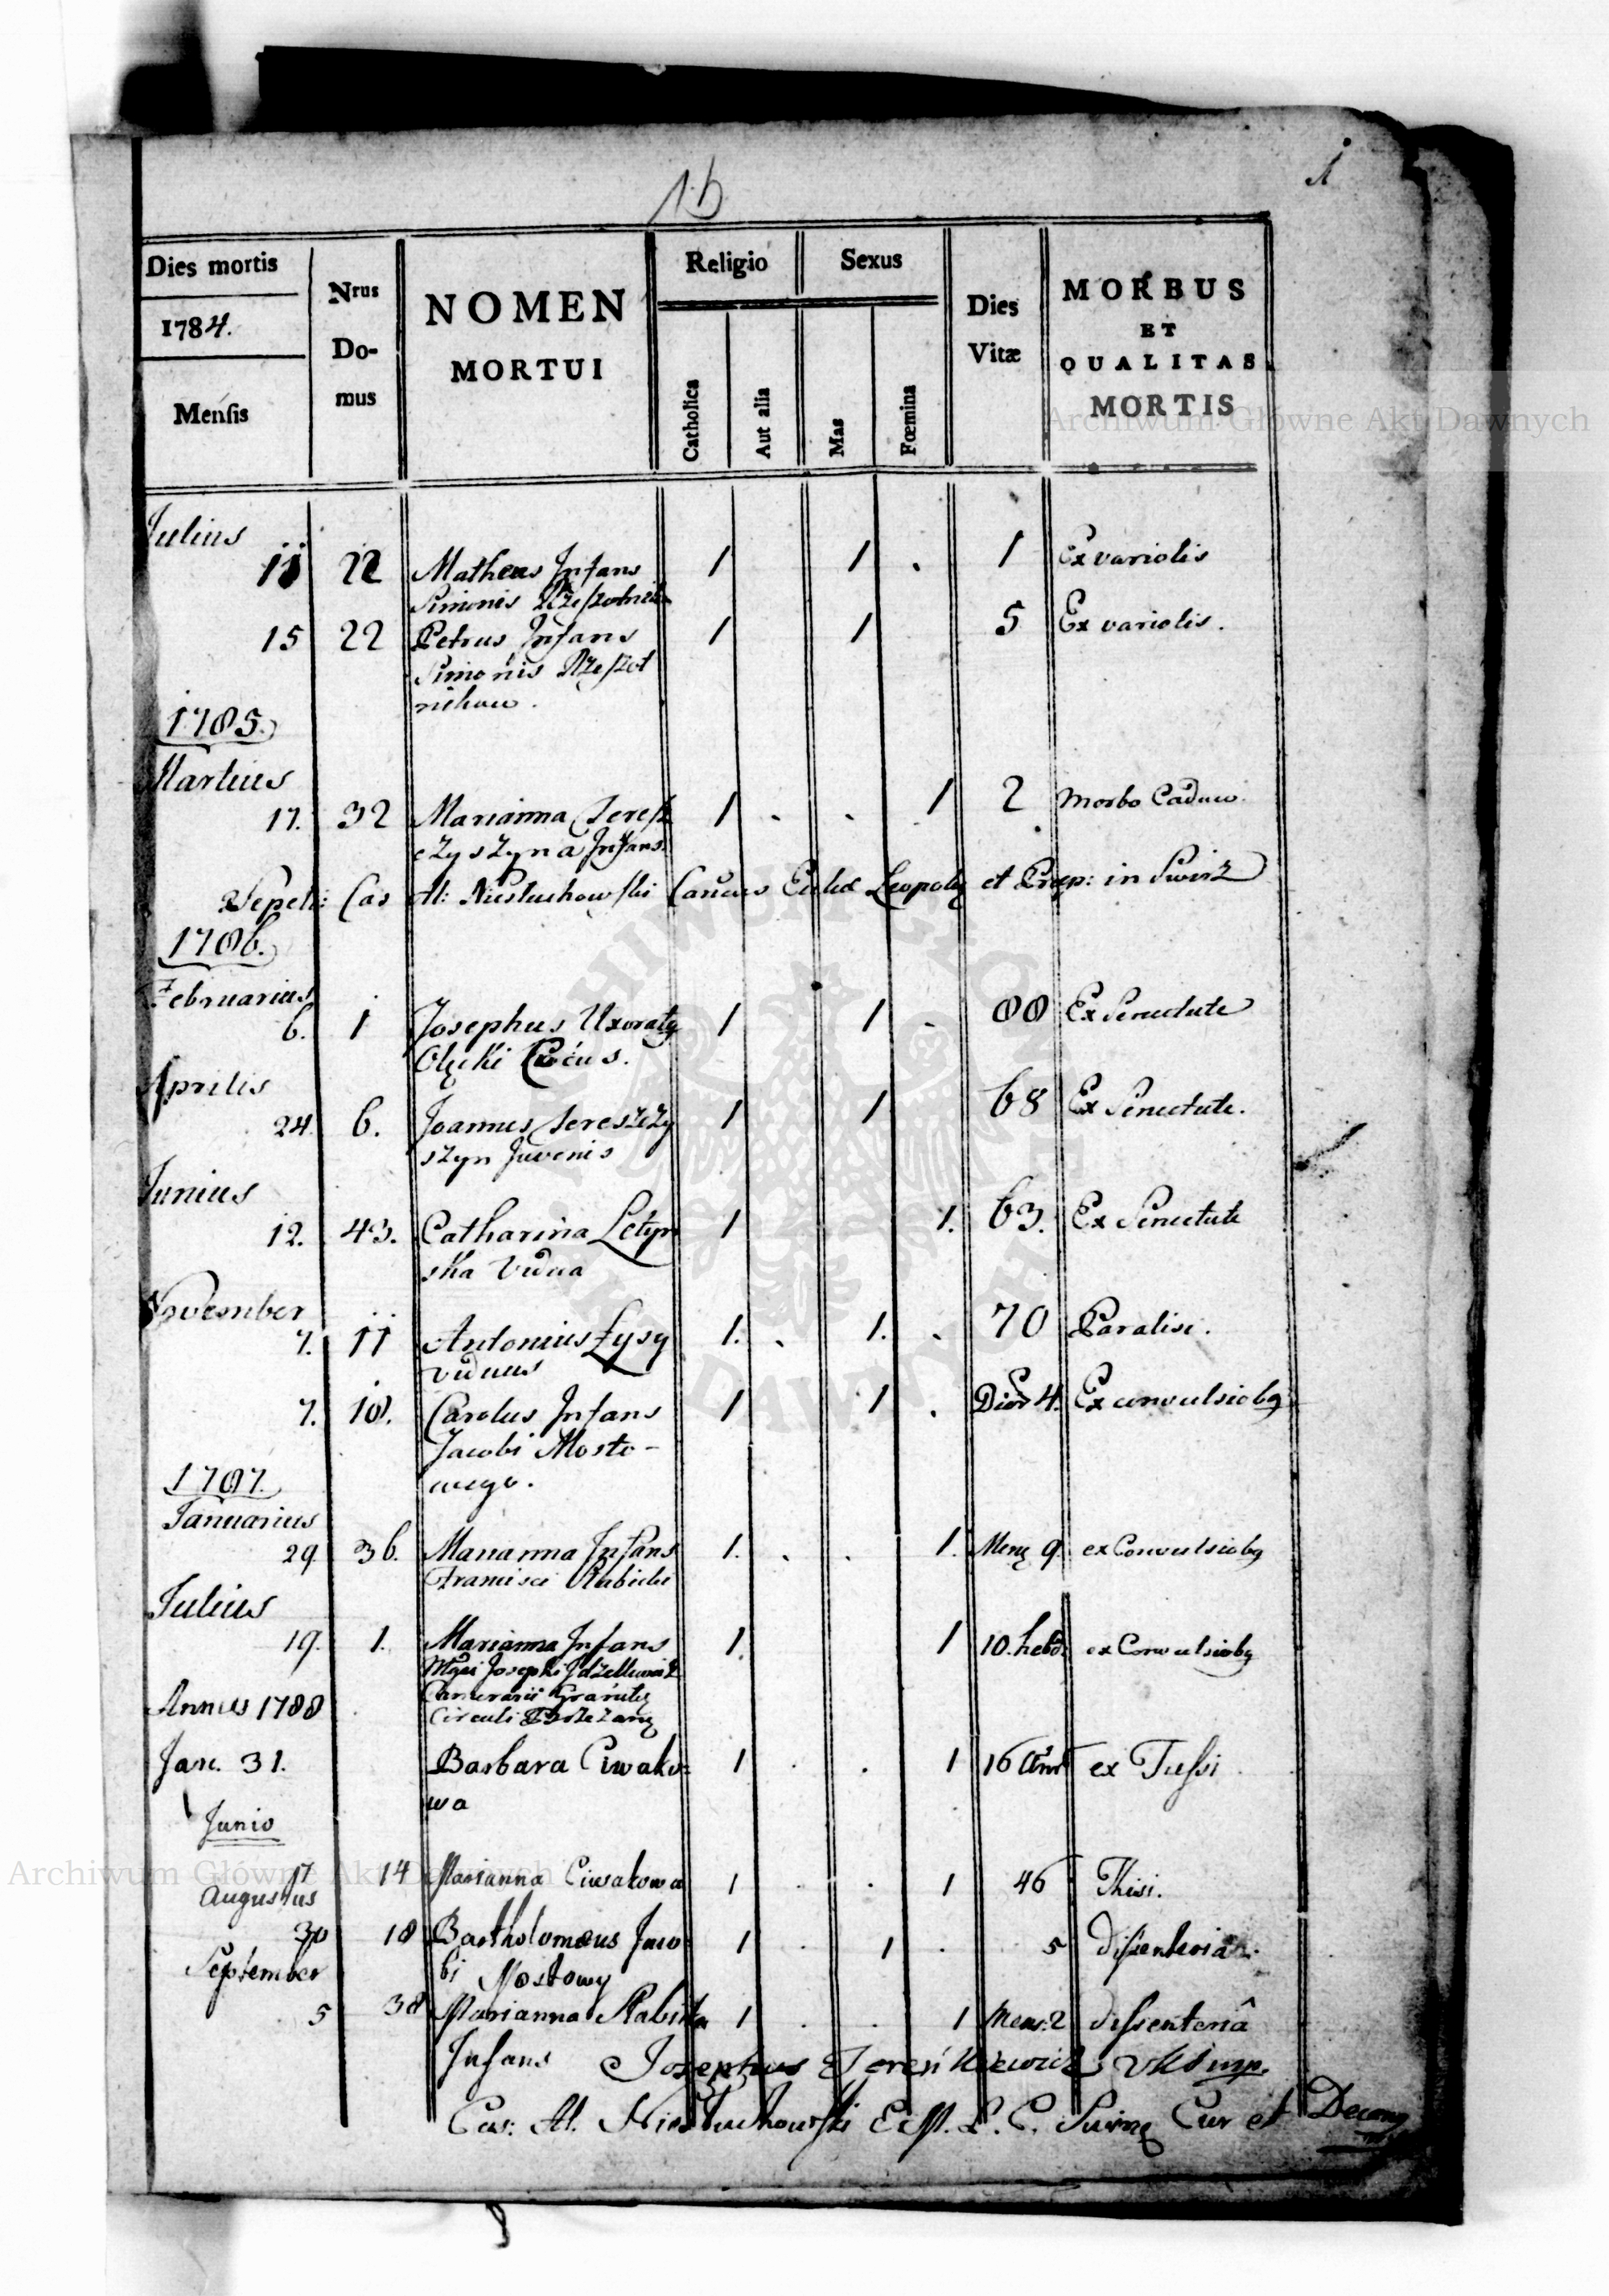 1.b
1
Dies mortis
1784.
Mensis
Nrus
Do-
mus
NOMEN
MORTUI
Religio
Catholica
Aut alia
Sexus
Mas
Fœmina
Dies
Vitæ
MORBUS
ET
QUALITAS
MORTIS
Archiwum Główne Akt Dawnych
Julius
11 22 Matheus Infans 1 1 . 1 Ex variolis
Simonis
15 22 Petrus Infans 1 1 5 Ex variolis.
Simonis Rzeszot
nikow.
1785.
Martius
17. 32 Marianna Teresz 1 . . 1 2 Morbo Caduco.
czyszyna Infans.
Cas Al: Niestuchowski et Præp: in Swirz
1786.
Februarius
6. 1 Josephus Uxoratq 1 1 . 88 Ex Senectute
Olęcki Cæcus.
Aprilis
24. 6. Joannes Tereszczy 1 1 68 Ex Senectute.
szyn Juvenis
Junius
12. 43. Catharina Letyn 1 1. 63. Ex Senectute
ska Vidua
November
7. 11 Antonius Łysy 1. . 1. . 70 Paralisi.
Viduus
7. 18. Carolus Infans 1 1 . Dier 4. Ex convulsiobq
Jacobi Mosto-
wego.
1787.
Januarius
29 36. Marianna Infans 1. . . 1. Menq 9. ex Convulsiobq
Francisci
Julius
19. 1. Marianna Infans 1. 1 10. hebd: ex Convulsiobq
Josephi
Camerarii Granitq
Circuli Brzezanq
Annus 1788
Jan. 31. Barbara Ciwako- 1 . . 1 16 Ann ex Tussi
wa
Junio
17 14 Marianna Ciwakowa 1 . . 1 46 Thisi.
Archiwum Główne Akt Dawnych
Augustus
30 18 Bartholomæus Jaco 1 . 1 . 5 dissenteria.
bi Mostowy
September
5 38 Marianna Rabska 1 . . 1 Mens: 2 dissenteriâ
Infans Josephus mp.
Cas: Al. Niestuchowski Cur et Decanq
ARCHIWUM GŁÓWNE AKT DAWNYCH